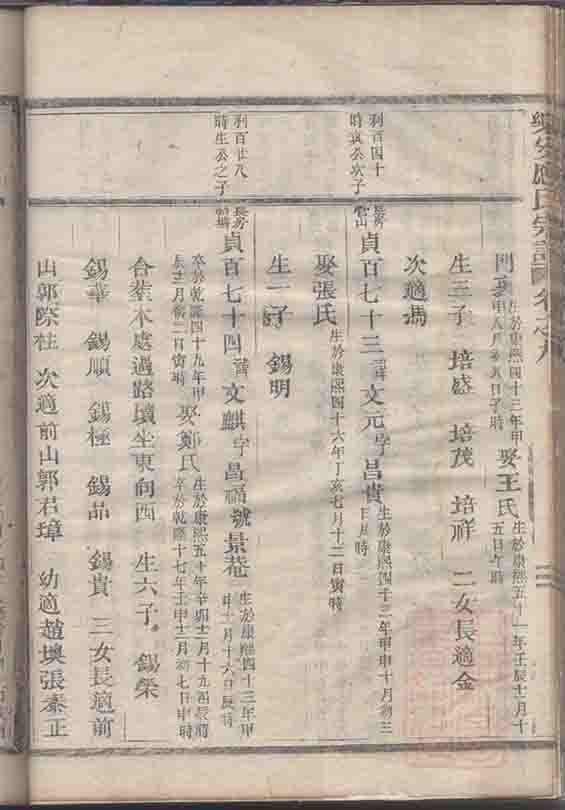 樂安應氏宗譜 卷之九
門 生於康熙四十三年甲申八月 日子時 娶王氏 生於康熙五十一年壬辰十一月十五日午時
生三子 培盛 培茂 培祥 二女長適金
次適馮
利百四十時 公次子
長房 貞百七十三 諱文元字昌貴 生於康熙四十三年甲申十月初三日 時
娶張氏 生於康熙四十六年丁亥七月十二日寅時
生一子 錫明
利百廿八時生公之子
長房 貞百七十四 諱文麒字昌福號景菴 生於康熙四十三年甲申十一月十六日辰時
卒於乾隆四十九年甲辰十二月初二日寅時 娶鄭氏 生於康熙五十年辛卯十二月十九酉辰時 卒於乾隆十七年壬申十二月初七日申時
合葬木處過路壠坐東向西 生六子 錫榮
錫華 錫順 錫極 錫品 錫貴 三女長適前
山郭際柱 次適前山郭君璋 幼適趙墺張秦正